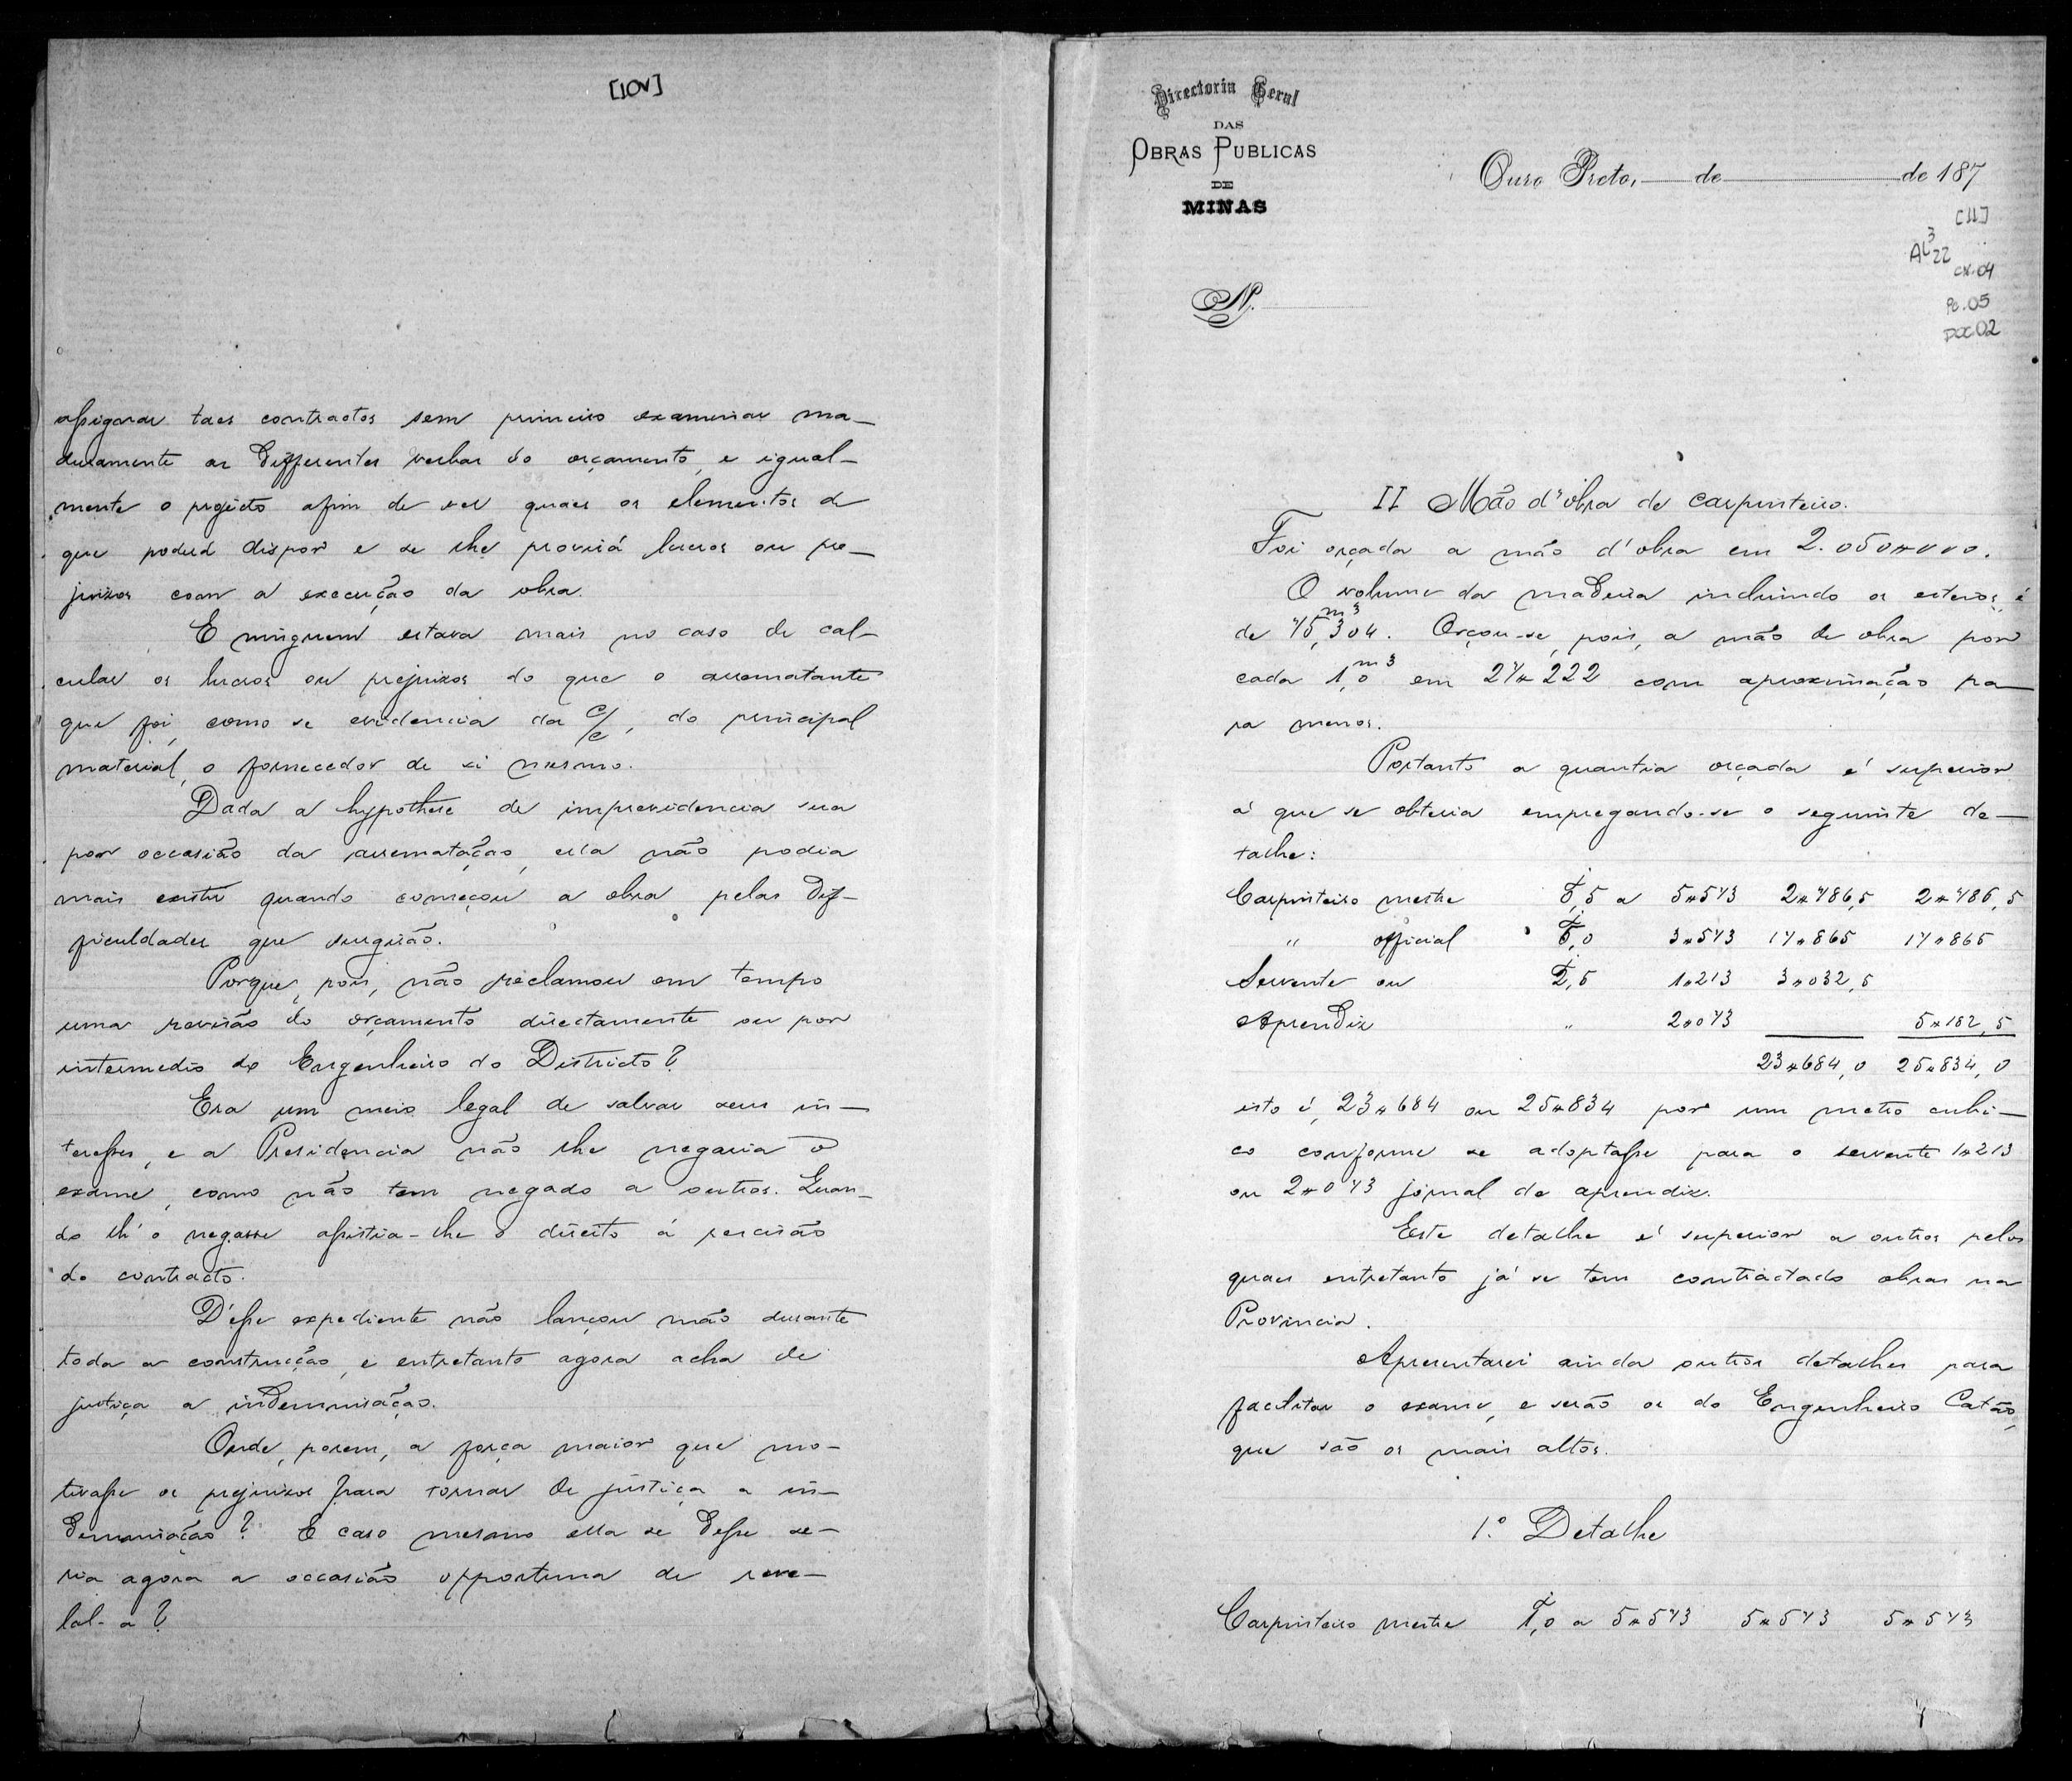 [10v]
assignar taes contractos sem primeiro examinar ma-
duramente as differentes verbas do orçamento, e igual-
mente o projecto afim de ver quaes os elementos de
que poderá dispor e se lhe proviriá lucros ou pre-
juizos com a execução da obra.
E ninguem estava mais no caso de cal-
cular os lucros ou prejuizos do que o arrematante
que foi, como se evidencia da c/c, do principal
material, o fornecedor de si mesmo.
Dada a hypothese de imprevidencia sua
por occasião da arrematação, ella não podia
mais existir quando começou a obra pelas dif-
ficuldades que surgirão.
Porque, pois, não reclamou em tempo
uma revisão do orçamento directamente ou por
intermedio do Engenheiro do Districto?
Era um meio legal de salvar seus in-
teresses, e a Presidencia não lhe negaria o
exame, como não tem negado a outros. Quan-
do lh'o negasse assistia-lhe o direito á rescisão
do contracto.
D'esse expediente não lançou mão durante
toda a construcção, e entretanto agora acha de
justiça a indemnisação.
Onde, porem, a força maior que mo-
tivasse os prejuizos para tornar de justiça a in-
demnisação? E caso mesmo ella se desse se-
ria agora a occasião opportuna de reve-
lal-a?
Directoria Geral
DAS
OBRAS PUBLICAS
DE
MINAS
Ouro Preto, de de 187
[11]
AL³22
cx.04
Pc.05
Doc02
N.
II Mão d'obra de carpinteiro.
Foi orçada a mão d'obra em 2.050$000.
O volume da madeira incluindo os esteios é
de 75,m3304. Orçou-se, pois, a mão de obra por
cada 1,m30 em 27$222 com aproximação pa-
ra menos.
Portanto a quantia orçada é superior
á que se obteria empregando-se o seguinte de-
talhe:
Carpinteiro mestre 0,5 a 5$573 2$786,5 2$786,5
" official 5,0 3$573 17$865 17$865
Servente ou 2,5 1$213 3$032,5
Aprendiz " 2$073 5$182,5
23$684,0 25$834,0
isto é, 23$684 ou 25$834 por um metro cubi-
co conforme se adoptasse para o servente 1$213
ou 2$073 jornal de aprendiz.
Este detalhe é superior a outros pelos
quaes entretanto já se tem contractado obras na
Provincia.
Apresentarei ainda outros detalhes para
facilitar o exame, e serão os do Engenheiro Catão,
que são os mais altos.
1.º Detalhe
Carpinteiro mestre 1,0 a 5$573 5$573 5$573